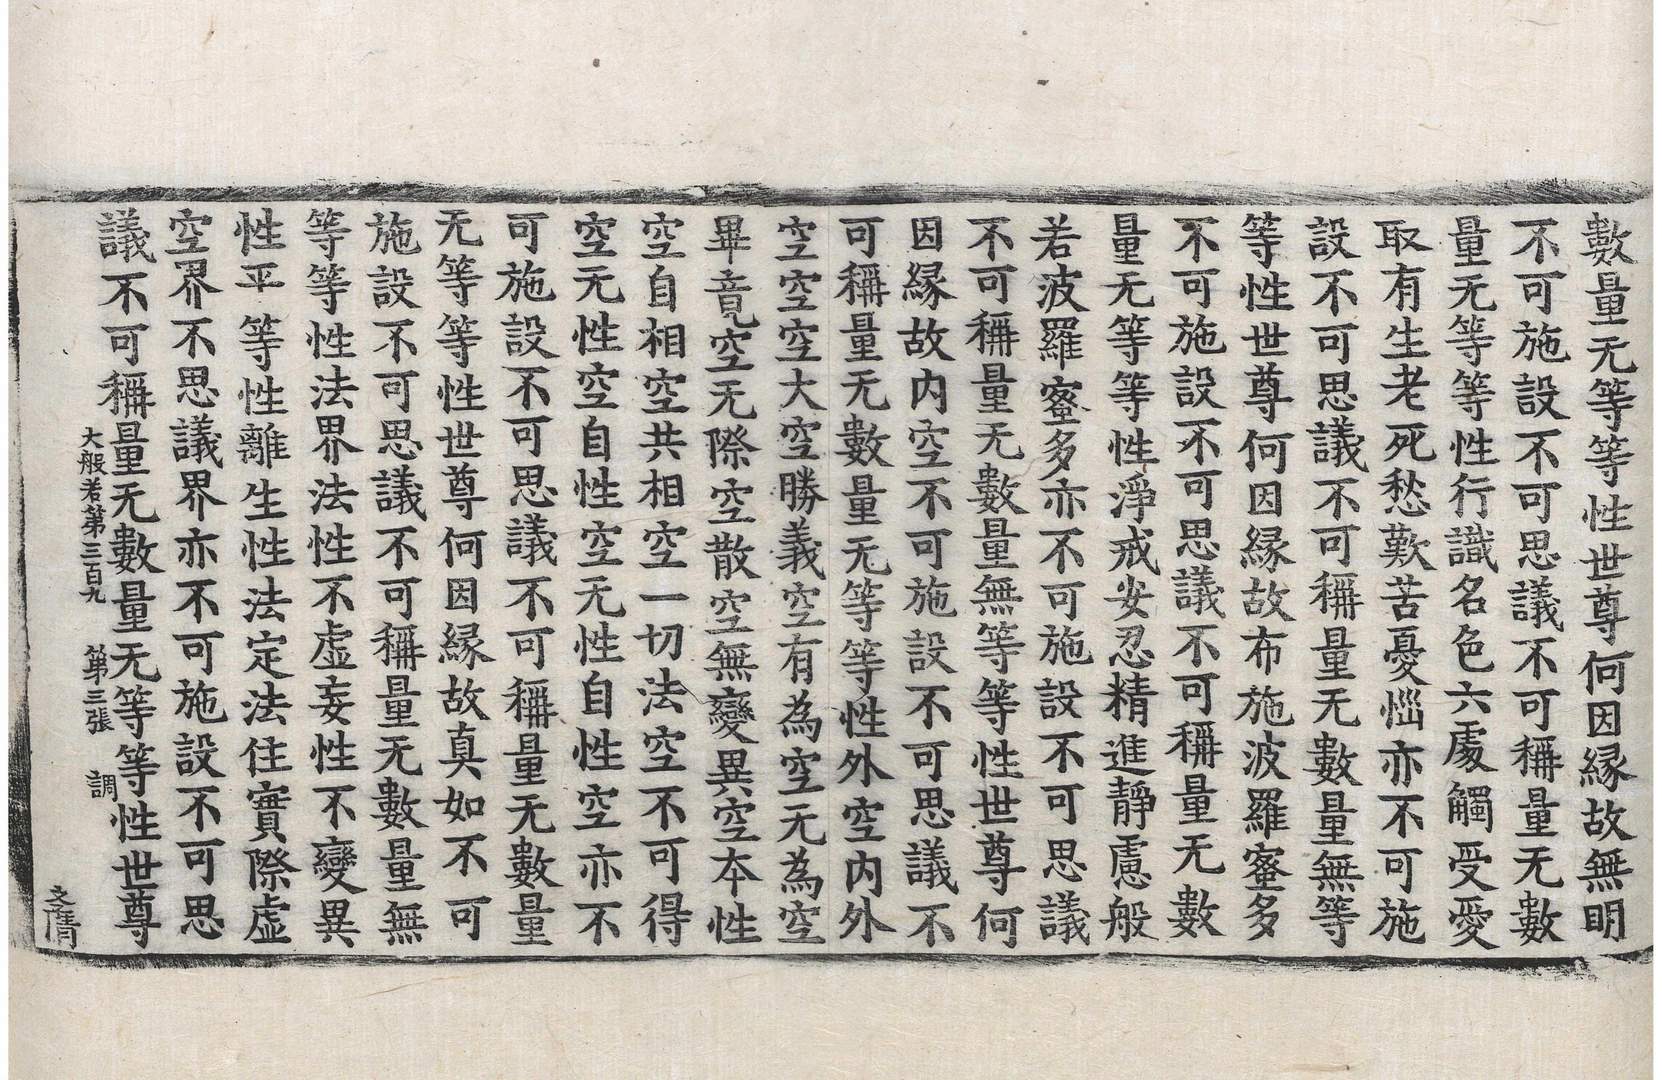 數量无等等性世尊何因縁故無明
不可施設不可思議不可稱量无數
量无等等性行識名色六處觸受愛
取有生老死愁歎苦憂惱亦不可施
設不可思議不可稱量无數量無等
等性世尊何因縁故布施波羅蜜多
不可施設不可思議不可稱量无數
量无等等性淨戒安忍精進靜慮般
若波羅蜜多亦不可施設不可思議
不可稱量无數量無等等性世尊何
因縁故内空不可施設不可思議不
可稱量无數量无等等性外空内外
空空空大空勝義空有為空无為空
畢竟空无際空散空無變異空本性
空自相空共相空一切法空不可得
空无性空自性空无性自性空亦不
可施設不可思議不可稱量无數量
无等等性世尊何因縁故真如不可
施設不可思議不可稱量无數量無
等等性法界法性不虛妄性不變異
性平等性離生性法定法住實際虛
空界不思議界亦不可施設不可思
議不可稱量无數量无等等性世尊
大般若第三百九 第三張 調